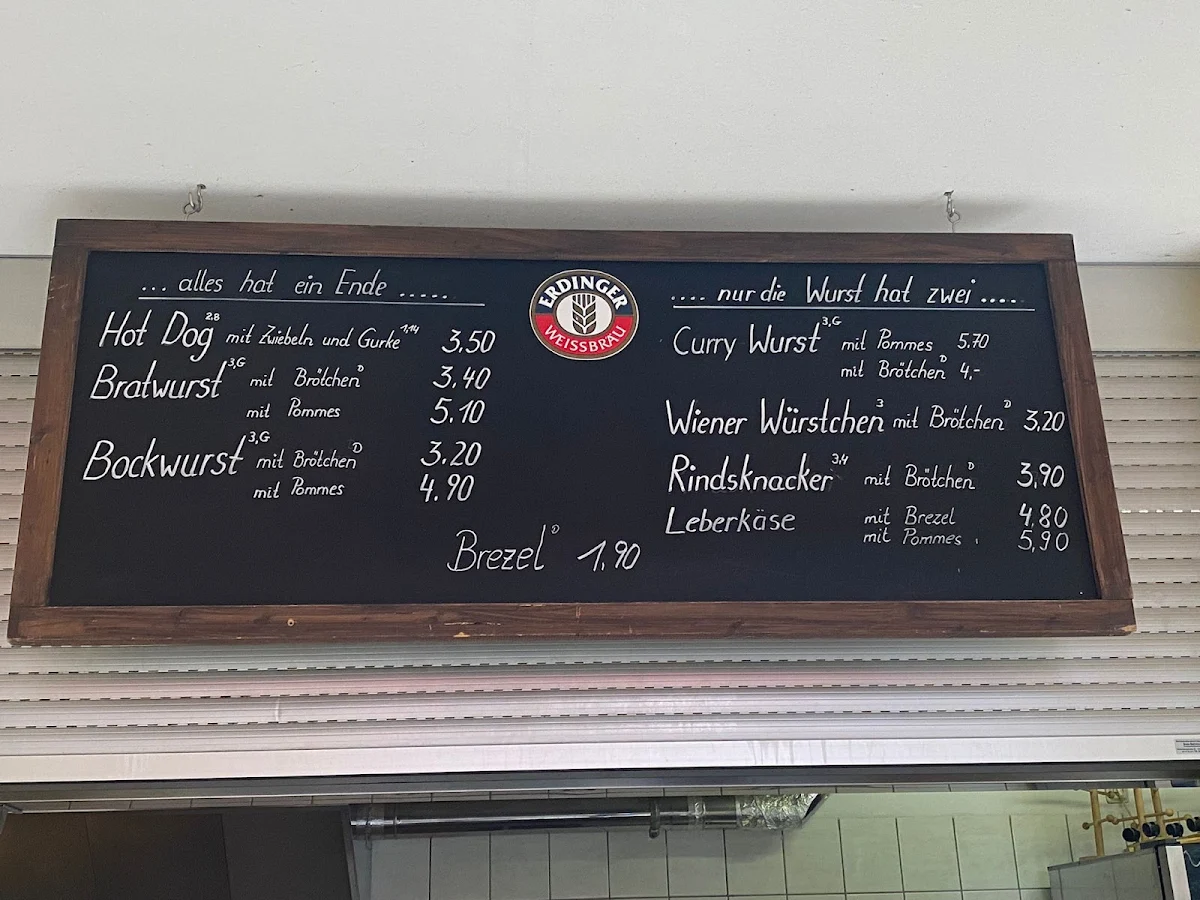 ... alles hat ein Ende .....
Hot Dog 2,8 mit Zwiebeln und Gurke 1,14 3.50
Bratwurst 3,G mit Brötchen D 3.40
mit Pommes 5.10
Bockwurst 3,G mit Brötchen D 3.20
mit Pommes 4.90
ERDINGER
WEISSBRÄU
.... nur die Wurst hat zwei .....
Curry Wurst 3,G mit Pommes 5.70
mit Brötchen D 4,-
Wiener Würstchen 3 mit Brötchen D 3,20
Rindsknacker 3,4 mit Brötchen D 3,90
Leberkäse mit Brezel 4,80
mit Pommes 5,90
Brezel D 1,90